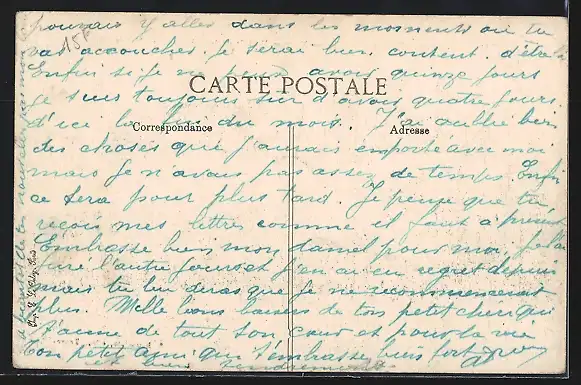 pouvais y aller dans les moments ou tu
vas accoucher. Je serai bien content d'être là
Enfin si je ne peux avoir quinze jours
je suis toujours sur d'avoir quatre jours
CARTE POSTALE
d'ici la fin du mois. J'ai oublié bien
Correspondance
Adresse
des choses que j'aurais emporté avec moi
mais je n'avais pas assez de temps Enfin
ce sera pour plus tard. Je pense que tu
reçois mes lettres comme il faut à présent
Embrasse bien mon daniel pour moi, je l'ai
l'autre jour et j'en ai eu regret depuis
mais tu lui diras que je ne recommencerai
plus. Mille bons baisers de ton petit cheri qui
t'aime de tout son cœur et pour la vie
Ton petit ami qui t'embrasse bien fort
et bien tendrement
15F